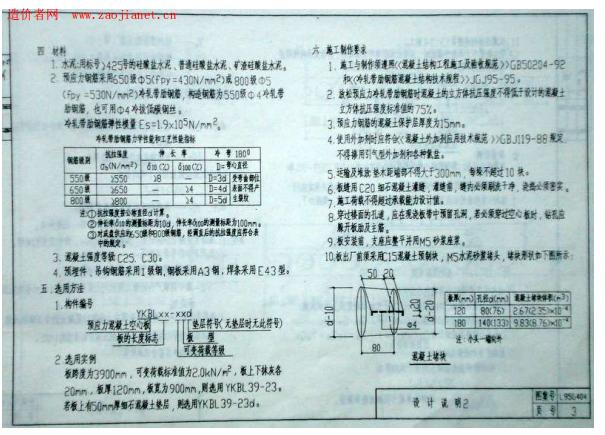 造价者网
www.zaojianet.cn
四 材料
1. 水泥:用标号≥425号的硅酸盐水泥、普通硅酸盐水泥、矿渣硅酸盐水泥。
2. 预应力钢筋采用650级Φ5(fpy=430N/mm²)或800级Φ5
(fpy=530N/mm²)冷轧带肋钢筋, 构造钢筋为550级Φ4冷轧带
肋钢筋, 也可用Φ4冷拔低碳钢丝。
冷轧带肋钢筋弹性模量Es=1.9×10⁵N/mm²。
冷轧带肋钢筋力学性能和工艺性能指标
钢筋级别 抗拉强度 σb(N/mm²) 伸长率 δ10(%) δ100(%) 冷弯180° D=弯心直径
550级 ≥550 ≥8 — D=3d 受弯曲部位
650级 ≥650 — ≥4 D=4d 表面不得产
800级 ≥800 — ≥4 D=5d 生裂纹
注:①抗拉强度按公称直径d计算。
②伸长率δ10的测量标距为10d, 伸长率δ100的测量标距为100mm。
③对成盘供应的650级和800级钢筋, 经调直后的抗拉强度应符合表
中的规定。
3. 混凝土强度等级C25、C30。
4. 预埋件、吊钩钢筋采用Ⅰ级钢, 钢板采用A3钢, 焊条采用E43型。
五 选用方法
1. 构件编号
YKBLxx-xxd
预应力混凝土空心板
板的长度标志
垫层符号(无垫层时无此符号)
板型
可变荷载等级
2. 选用实例
板跨度为3900mm, 可变荷载标准值为2.0kN/m², 板上下抹灰各
20mm, 板厚120mm, 板宽为900mm, 则选用YKBL39-23。
若板上有50mm厚细石混凝土垫层, 则选用YKBL39-23d。
六 施工制作要求
1. 施工与制作须遵照《混凝土结构工程施工及验收规范》GB50204-92
和《冷轧带肋钢筋混凝土结构技术规程》JGJ95-95。
2. 放松预应力冷轧带肋钢筋时混凝土的立方体抗压强度不得低于设计的混凝土
立方体抗压强度标准值的75%。
3. 预应力钢筋的混凝土保护层厚度为15mm。
4. 使用外加剂时应符合《混凝土外加剂应用技术规范》GBJ119-88规定,
不得掺用引气型外加剂和各种氯盐。
5. 运输及堆放, 垫木距端部不得大于300mm, 每垛不超过10块。
6. 板缝用C20细石混凝土灌缝, 灌缝前, 缝内必须刷洗干净, 浇捣必须密实。
7. 施工荷载不得超过承载能力设计值。
8. 穿过楼面的孔道, 应在现浇板带中预留孔洞, 若必须穿过空心板时, 钻孔应
避开板肋及主筋。
9. 板安装前, 支座应整平并用M5砂浆座浆。
10. 板出厂前须采用C15混凝土预制块, M5水泥砂浆堵头, 堵块形状如下图所示:
50 20
d-10
d-20
d-20
Φ4
80
混凝土堵块
板厚(mm) 孔径d(mm) 混凝土堵块体积(m³)
120 80(76) 2.67(2.35)×10⁻⁴
180 140(133) 9.83(8.76)×10⁻⁴
注: 小头一端向外
设计说明2
图集号 L95G404
页号 3